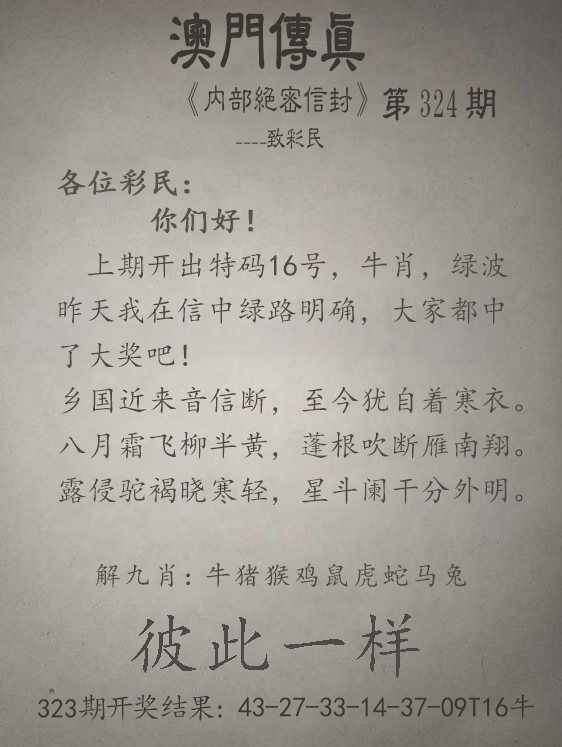 澳門傳真
《内部絕密信封》第324期
----致彩民
各位彩民：
你们好！
上期开出特码16号，牛肖，绿波
昨天我在信中绿路明确，大家都中
了大奖吧！
乡国近来音信断，至今犹自着寒衣。
八月霜飞柳半黄，蓬根吹断雁南翔。
露侵驼褐晓寒轻，星斗阑干分外明。
解九肖：牛猪猴鸡鼠虎蛇马兔
彼此一样
323期开奖结果：43-27-33-14-37-09T16牛